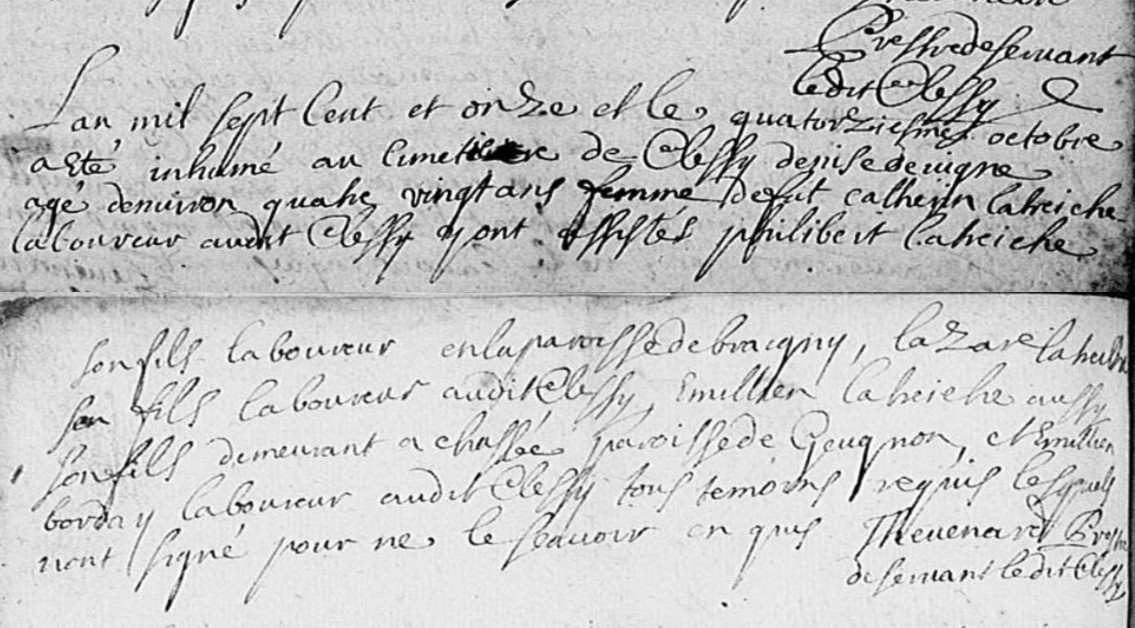 Prestre deservant
ledit Clessy
Lan mil sept Cent et onze et le quatorziesme octobre
a Eté inhumé au Cimetiere de Clessy denise devigne
agé denuiron quatre vingt ans femme defut catherin latreiche
laboureur audit Clessy y ont assistés philibert latreiche
son fils laboureur en la paroisse de bragny, lazare latreiche
son fils laboureur audit Clessy, Emillien latreiche aussy
son fils demeurant a chassée paroisse de Geugnon, et Emillien
borday laboureur audit Clessy tous temoins requis lesquels
nont signé pour ne le scavoir en quis Thevenard Prestre
deservant ledit Clessy